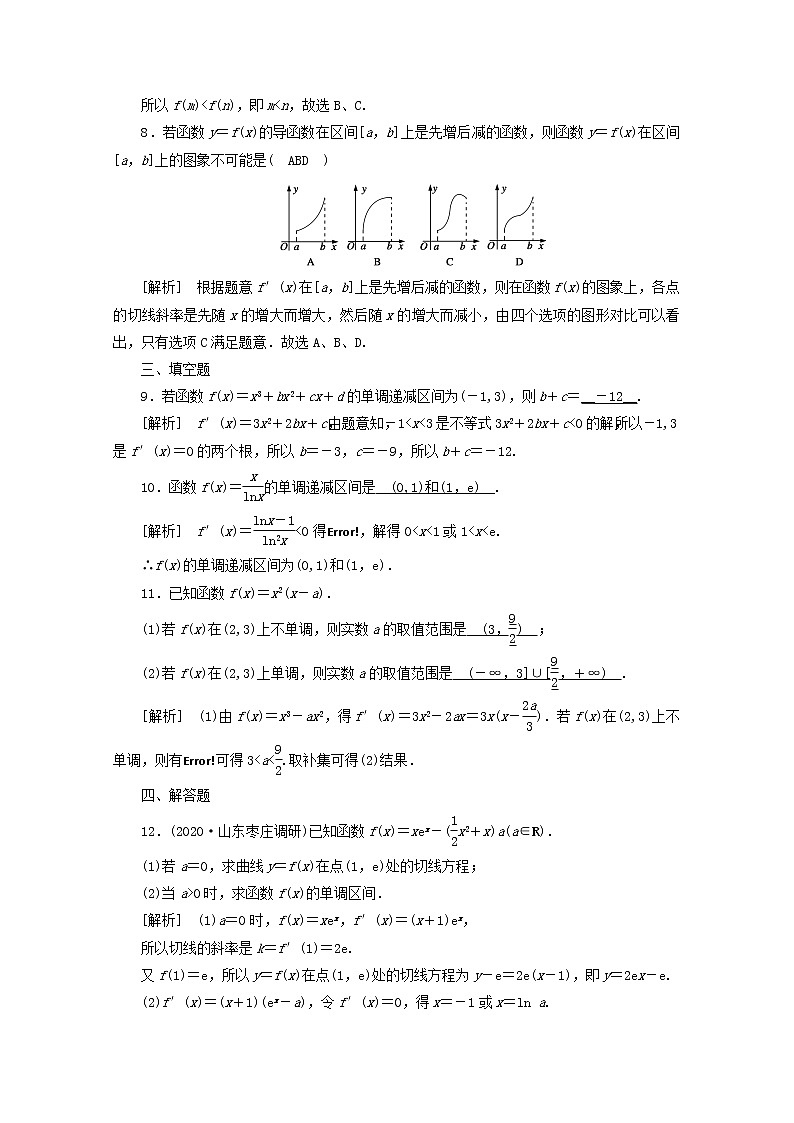 所以 f(m)<f(n)，即 m<n，故选 B、C.
8．若函数 y＝f(x)的导函数在区间[a，b]上是先增后减的函数，则函数 y＝f(x)在区间
[a，b]上的图象不可能是( ABD )
y y y y
O a b x O a b x O a b x O a b x
A B C D
[解析] 根据题意 f′(x)在[a，b]上是先增后减的函数，则在函数 f(x)的图象上，各点
的切线斜率是先随 x 的增大而增大，然后随 x 的增大而减小，由四个选项的图形对比可以看
出，只有选项 C 满足题意．故选 A、B、D.
三、填空题
9．若函数 f(x)＝x³＋bx²＋cx＋d 的单调递减区间为(－1,3)，则 b＋c＝__－12__.
[解析] f′(x)＝3x²＋2bx＋c，由题意知，－1<x<3 是不等式 3x²＋2bx＋c<0 的解，所以－1,3
是 f′(x)＝0 的两个根，所以 b＝－3，c＝－9，所以 b＋c＝－12.
10．函数 f(x)＝x/lnx的单调递减区间是 (0,1)和(1，e) .
[解析] f′(x)＝(lnx－1)/ln²x<0 得Error!，解得 0<x<1 或 1<x<e.
∴f(x)的单调递减区间为(0,1)和(1，e)．
11．已知函数 f(x)＝x²(x－a)．
(1)若 f(x)在(2,3)上不单调，则实数 a 的取值范围是 (3，9/2) ；
(2)若 f(x)在(2,3)上单调，则实数 a 的取值范围是 (－∞，3]∪[9/2，＋∞) .
[解析] (1)由 f(x)＝x³－ax²，得 f′(x)＝3x²－2ax＝3x(x－2a/3)．若 f(x)在(2,3)上不
单调，则有Error!可得 3<a<9/2.取补集可得(2)结果．
四、解答题
12．(2020·山东枣庄调研)已知函数 f(x)＝xeˣ－(1/2x²＋x)a(a∈R)．
(1)若 a＝0，求曲线 y＝f(x)在点(1，e)处的切线方程；
(2)当 a>0 时，求函数 f(x)的单调区间．
[解析] (1)a＝0 时，f(x)＝xeˣ，f′(x)＝(x＋1)eˣ，
所以切线的斜率是 k＝f′(1)＝2e.
又 f(1)＝e，所以 y＝f(x)在点(1，e)处的切线方程为 y－e＝2e(x－1)，即 y＝2ex－e.
(2)f′(x)＝(x＋1)(eˣ－a)，令 f′(x)＝0，得 x＝－1 或 x＝ln a.